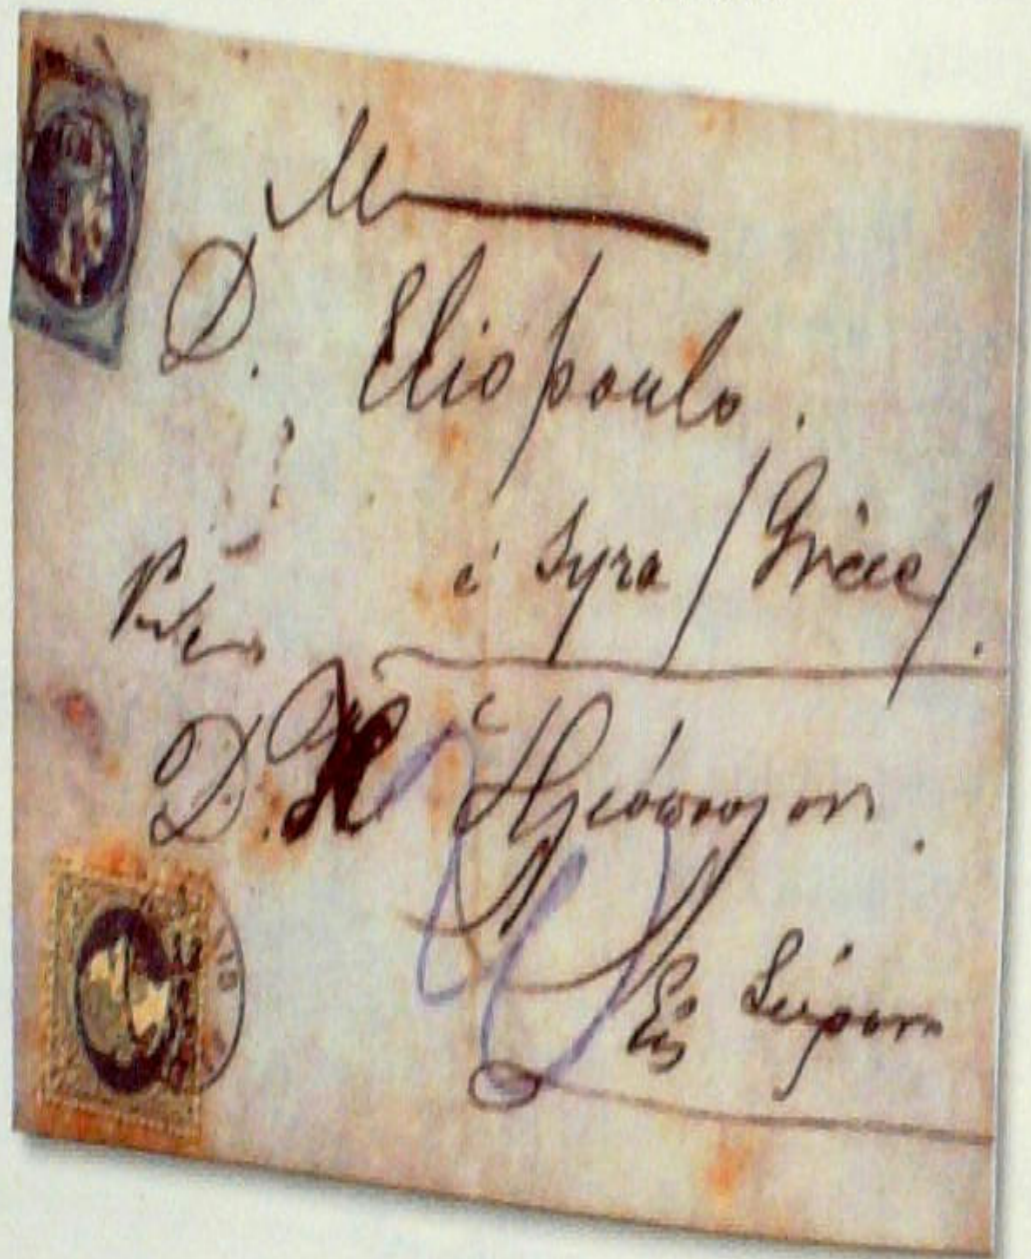 M
D. Eliopoulo.
à Syra / Grèce /.
Δ. Ηλιόπουλον.
Εις Σύρον